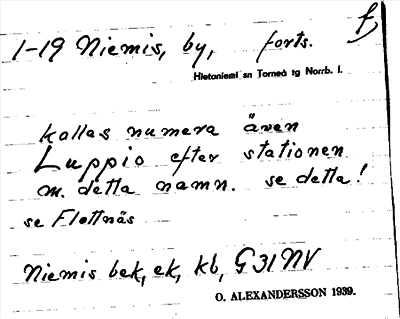 f
1-19 Niemis, by, forts.
Hietaniemi sn Torneå tg Norrb. l.
kallas numera även
Luppio efter stationen
m. detta namn. se detta!
se Flottnäs
Niemis bek, ek, kb, G31NV
O. ALEXANDERSSON 1939.